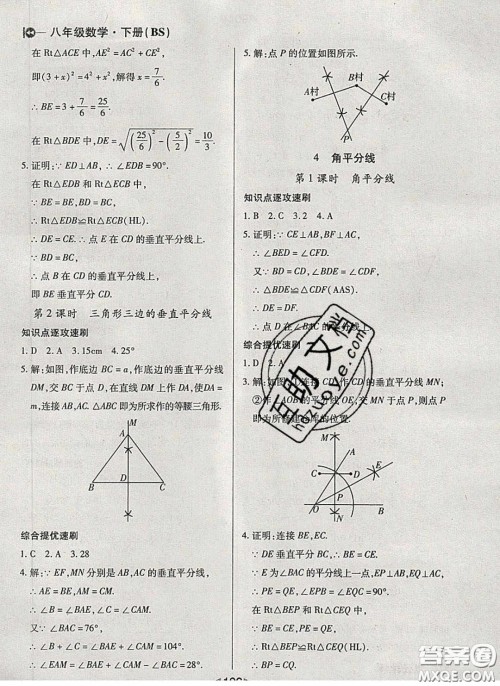 八年级数学·下册(BS)
在 Rt△ACE 中,AE²=AC²+CE²,
即(3+x)²=4²+x²,解得 x=7/6.
∴BE=3+7/6=25/6.
在 Rt△BDE 中,DE=√((25/6)²-(5/2)²)=10/3.
5.证明:∵ED⊥AB,∴∠EDB=90°.
在 Rt△EDB 和 Rt△ECB 中,
∵BE=BE,BD=BC,
∴Rt△EDB≌Rt△ECB(HL).
∴DE=CE.∴点 E 在 CD 的垂直平分线上.
∵BD=BC,
∴点 B 在 CD 的垂直平分线上,
即 BE 垂直平分 CD.
第2课时 三角形三边的垂直平分线
知识点逐攻速刷
1.D 2.A 3.15cm 4.25°
5.解:如图,作底边 BC=a,作底边的垂直平分线
DM,交 BC 于点 D,在 DM 上,作 DA,使 DA=
m,连接 AB,△ABC 即为所求作的等腰三角形.
M
A
B
D
C
综合提优速刷
1.C 2.A 3.28
4.解:∵EF,MN 分别是 AB,AC 的垂直平分线,
∴AE=BE,AM=CM.
∴∠B=∠BAE,∠C=∠CAM.
∵∠BAC=76°,
∴∠B+∠C=∠BAE+∠CAM=104°.
∴∠EAM=∠BAE+∠CAM-∠BAC=28°.
5.解:点 P 的位置如图所示.
A村
B村
C村
P
4 角平分线
第1课时 角平分线
知识点逐攻速刷
1.B 2.C 3.2 4.A
5.证明:∵CE⊥AB,BF⊥AC,
∴∠BED=∠CFD.
又∵∠BDE=∠CDF,BD=CD,
∴△BDE≌△CDF(AAS).
∴DE=DF.
∴点 D 在∠BAC 的平分线上.
综合提优速刷
1.D 2.A
3.解:如图,①连接 CD,作 CD 的垂直平分线 MN;
②作∠AOB 的平分线 OE,交 MN 于点 P,则点 P
即为所建仓库的位置.
M
A
C
E
P
O
D
B
N
4.证明:连接 BE,EC.
∵DE 垂直平分 BC,∴BE=CE.
∵E 为∠BAC 的平分线上一点,EP⊥AB,EQ⊥AC,
∴PE=QE,∠EPB=∠EQC=90°.
在 Rt△BEP 和 Rt△CEQ 中,
∵BE=CE,PE=QE,
∴Rt△BEP≌Rt△CEQ(HL).
∴BP=CQ.
互助文档
hozuoye.com
答案圈
MXQE.COM